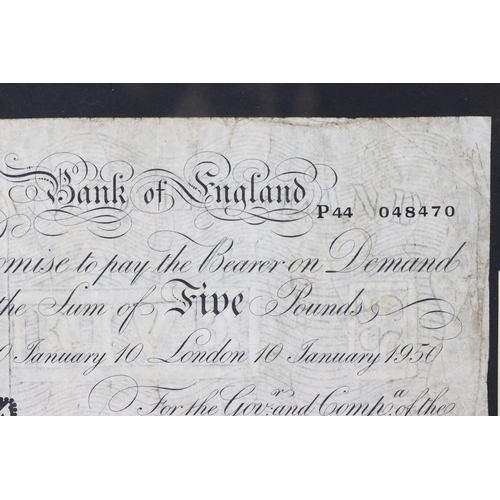 Bank of England
P44 048470
omise to pay the Bearer on Demand
the Sum of Five Pounds
0 January 10 London 10 January 1950
For the Govr. and Compa. of the